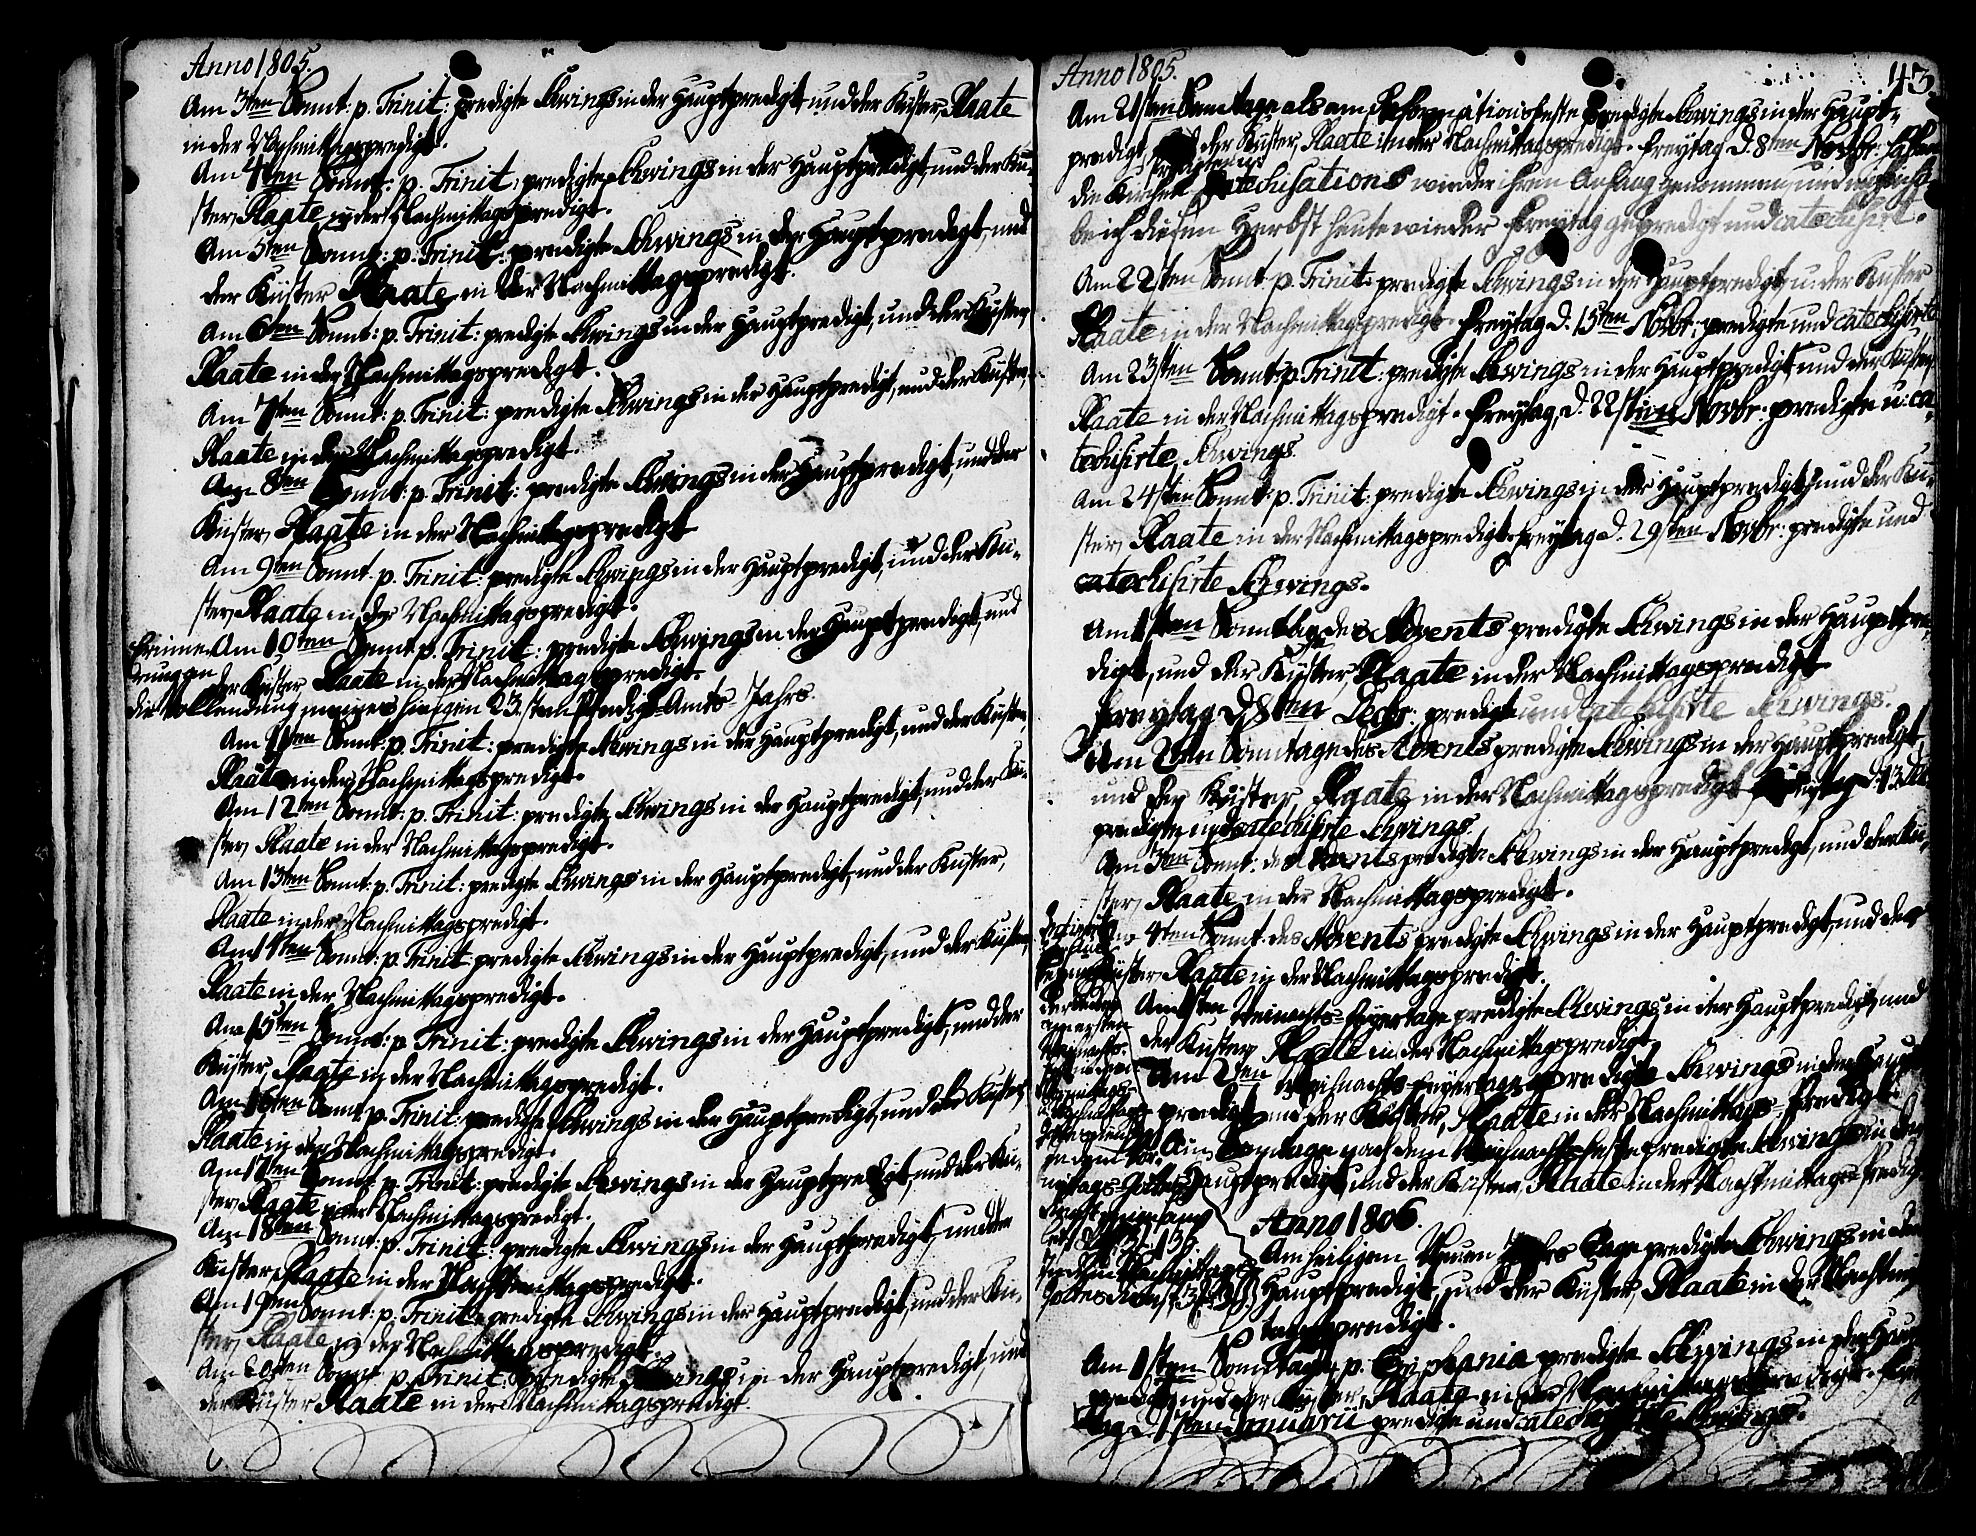 Anno 1805.
Am 3ten Sonnt: p. Trinit: predigte Schwings in der Hauptpredigt, und der Küster, Plaate
in der Nachmittagspredigt.
Am 4ten Sonnt: p. Trinit: predigte Schwings in der Hauptpredigt, und der Kü-
ster, Plaate in der Nachmittagspredigt.
Am 5ten Sonnt: p. Trinit: predigte Schwings in der Hauptpredigt, und
der Küster Plaate in der Nachmittagspredigt.
Am 6ten Sonnt: p. Trinit: predigte Schwings in der Hauptpredigt, und der Küster,
Plaate in der Nachmittagspredigt.
Am 7ten Sonnt: p. Trinit: predigte Schwings in der Hauptpredigt, und der Küster,
Plaate in der Nachmittagspredigt.
Am 8ten Sonnt: p. Trinit: predigte Schwings in der Hauptpredigt, und der
Küster, Plaate in der Nachmittagspredigt
Am 9ten Sonnt. p. Trinit: predigte Schwings in der Hauptpredigt, und der Kü-
ster, Plaate in der Nachmittagspredigt.
Erinne- Am 10ten Sonnt. p. Trinit: predigte Schwings in der Hauptpredigt, und
rung an der Küster Plaate in der Nachmittagspredigt.
die Vollendung meines hiesigen 23.sten Predigt-Amts-Jahrs.
Am 11ten Sonnt: p. Trinit: predigte Schwings in der Hauptpredigt, und der Küster,
Plaate in der Nachmittagspredigt.
Am 12ten Sonnt: p. Trinit: predigte Schwings in der Hauptpredigt, und der Kü-
ster, Plaate in der Nachmittagspredigt.
Am 13ten Sonnt: p. Trinit: predigte Schwings in der Hauptpredigt, und der Küster,
Plaate in der Nachmittagspredigt.
Am 14ten Sonnt: p. Trinit predigte Schwings in der Hauptpredigt, und der Küster,
Plaate in der Nachmittagspredigt.
Am 15ten Sonnt: p. Trinit: predigte Schwings in der Hauptpredigt, und der
Küster, Plaate in der Nachmittagspredigt.
Am 16ten Sonnt. p. Trinit: predigte Schwings in der Hauptpredigt, und der Küster,
Plaate in der Nachmittagspredigt.
Am 17ten Sonnt. p. Trinit: predigte Schwings in der Hauptpredigt, und der Kü-
ster, Plaate in der Nachmittagspredigt.
Am 18ten Sonnt: p. Trinit: predigte Schwings in der Hauptpredigt, und der
Küster, Plaate in der Nachmittagspredigt.
Am 19ten Sonnt: p. Trinit: predigte Schwings in der Hauptpredigt, und der Kü-
ster, Plaate in der Nachmittagspredigt.
Am 20sten Sonnt p. Trinit: predigte Schwings in der Hauptpredigt, und
der Küster Plaate in der Nachmittagspredigt.
Anno 1805.
43.
Am 21sten Sonntage als am Reformationsfeste predigte Schwings in der Haupt-
predigt, der Küster, Plaate in der Nachmittagspredigt. Freytag d. 8ten Novbr: haben
die Kirchen Catechisations wieder ihren Anfang genommen, und ha-
be ich diesen Herbst heute wieder Freytag gepredigt und catechisirt.
Am 22sten Sonnt p. Trinit: predigte Schwings in der Hauptpredigt, u. der Küster
Plaate in der Nachmittagspredigt. Freytag d. 15ten Novbr: predigte und catechisirte
Am 23sten Sonnt: p. Trinit: predigte Schwings in der Hauptpredigt, und der Küster,
Plaate in der Nachmittagspredigt. Freytag, d. 22sten Novbr: predigte u: ca-
techisirte Schwings.
Am 24sten Sonnt: p. Trinit: predigte Schwings in der Hauptpredigt, und der Kü-
ster, Plaate in der Nachmittagspredigt. Freytag d. 29sten Novbr: predigte und
catechisirte Schwings.
Am 1sten Sonntag des Advents predigte Schwings in der Hauptpre-
digt, und der Küster, Plaate in der Nachmittagspredigt
Freytag d 8ten Decbr: predigte und catechisirte Schwings.
Am 2ten Sonntage des Advents predigte Schwings in der Hauptpredigt,
und der Küster, Plaate in der Nachmittagspredigt Freytag d: 13
predigte und catechisirte Schwings.
Am 3ten Sonnt: des Advents predigte Schwings in der Hauptpredigt, und der Kü-
ster, Plaate in der Nachmittagspredigt.
4ten Sonnt. des Advents predigte Schwings in der Hauptpredigt, und der
Küster, Plaate in der Nachmittagspredigt.
Am 1sten Weinachts-Feyertage predigte Schwings in der Hauptpredigt, und
der Küster, Plaate in der Nachmittagspredigt.
Am 2ten Weihnachts-Feyertage predigte Schwings in der Haupt-
predigt, und der Küster, Plaate in der Nachmittags-Predigt.
Am Sonntage nach dem Weihnachts-Feste predigte Schwings in der
Hauptpredigt, und der Küster, Plaate in der Nachmittags-Predigt
am ersten
Weihnachts-
Anno 1806.
Am heiligen Neuen Jahrs Tage predigte Schwings in der
Hauptpredigt, und der Küster, Plaate in der Nachmit-
tagspredigt.
Am 1sten Sonntage p. Epiphania predigte Schwings in der Haupt-
predigt, und der Küster, Plaate in der Nachmittagspredigt. Frey-
tag Januarii predigte und catechisirte Schwings.